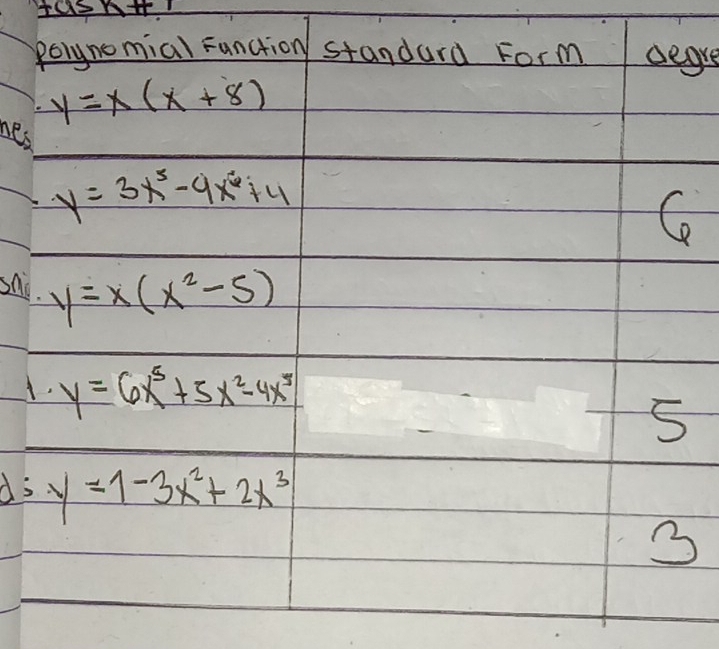 task #1
Polynomial Function Standard Form degre
nes
. y = x (x + 8)
. y = 3x⁵ - 4x⁶ + 4 6
. y = x (x² - 5)
1. y = 6x⁵ + 5x² - 4x³ 5
5. y = 1 - 3x² + 2x³
3